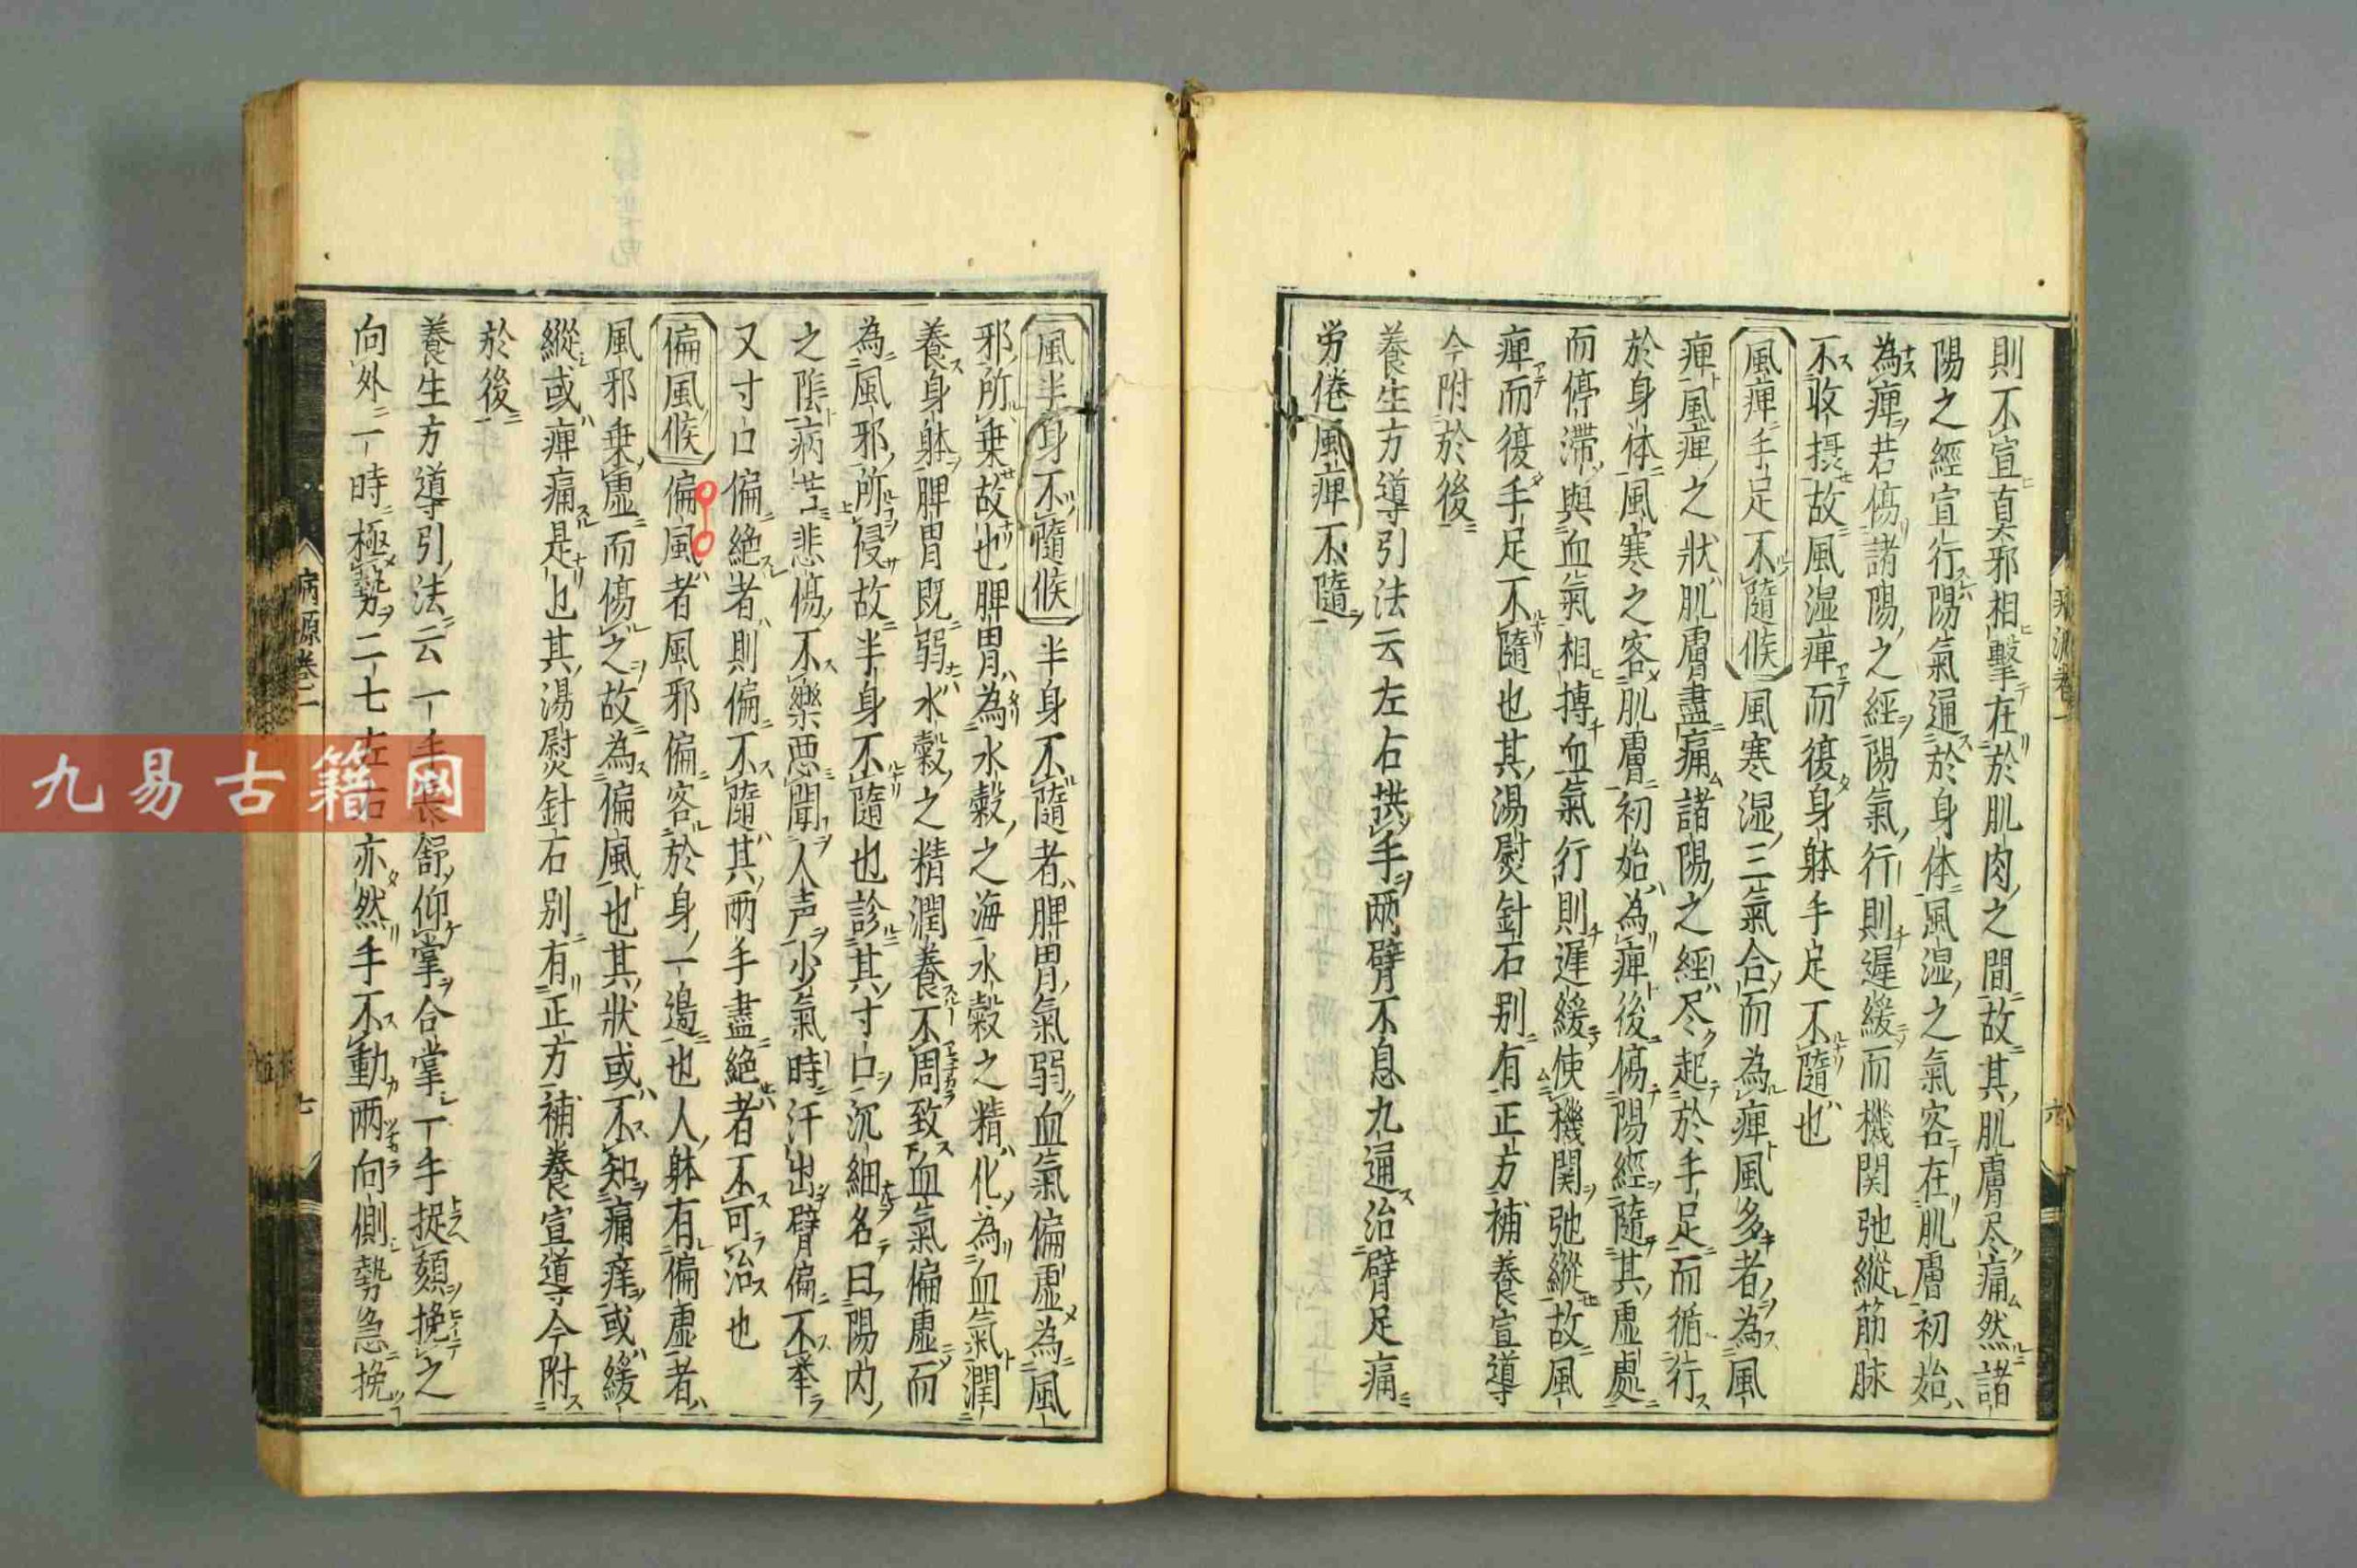 則不宣真邪相擊在於肌肉之間故其肌膚尽痛然諸
陽之經宣行陽氣通於身体風湿之氣客在肌膚初始
為痺若傷諸陽之經陽氣行則遲緩而機関弛縱筋脉
不收摂故風湿痺而復身躰手足不隨也
風痺手足不隨候 風寒湿三氣合而為痺風多者為風
痺風痺之狀肌膚盡痛諸陽之經尽起於手足而循行
於身体風寒之客肌膚初始為痺後傷陽經隨其虛處
而停滯與血氣相搏血氣行則遲緩使機関弛縱故風
痺而復手足不隨也其湯熨針石別有正方補養宣導
今附於後
養生方導引法云左右拱手两臂不息九通治臂足痛
労倦風痺不隨
風半身不隨候 半身不隨者脾胃氣弱血氣偏虛為風
邪所乗故也脾胃為水穀之海水穀之精化為血氣潤
養身躰脾胃既弱水穀之精潤養不周致血氣偏虛而
為風邪所侵故半身不隨也診其寸口沉細名曰陽内
之陰病苦悲傷不樂悪聞人声少氣時汗出臂偏不挙
又寸口偏絶者則偏不隨其两手盡絶者不可治也
偏風候 偏風者風邪偏客於身一邊也人躰有偏虛者
風邪乗虛而傷之故為偏風也其狀或不知痛痒或緩
縱或痺痛是也其湯熨針石別有正方補養宣導今附
於後
養生方導引法云一手長舒仰掌合掌一手捉頦挽之
向外一時極勢二七左右亦然手不動两向側勢急挽
病源卷二
七
六
九易古籍网